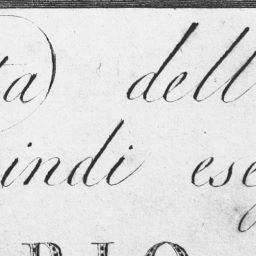 ta dell
indi ese
RIO